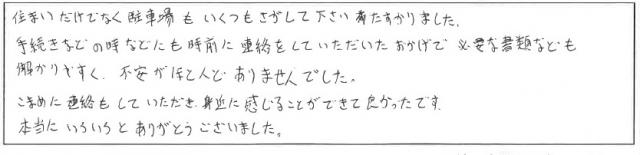 住まいだけでなく駐車場もいくつもさがして下さい有たすかりました。
手続きなどの時などにも時前に連絡をしていただいたおかげで必要な書類なども
解かりやすく、不安がほとんどありませんでした。
こまめに連絡もしていただき身近に感じることができて良かったです。
本当にいろいろとありがとうございました。